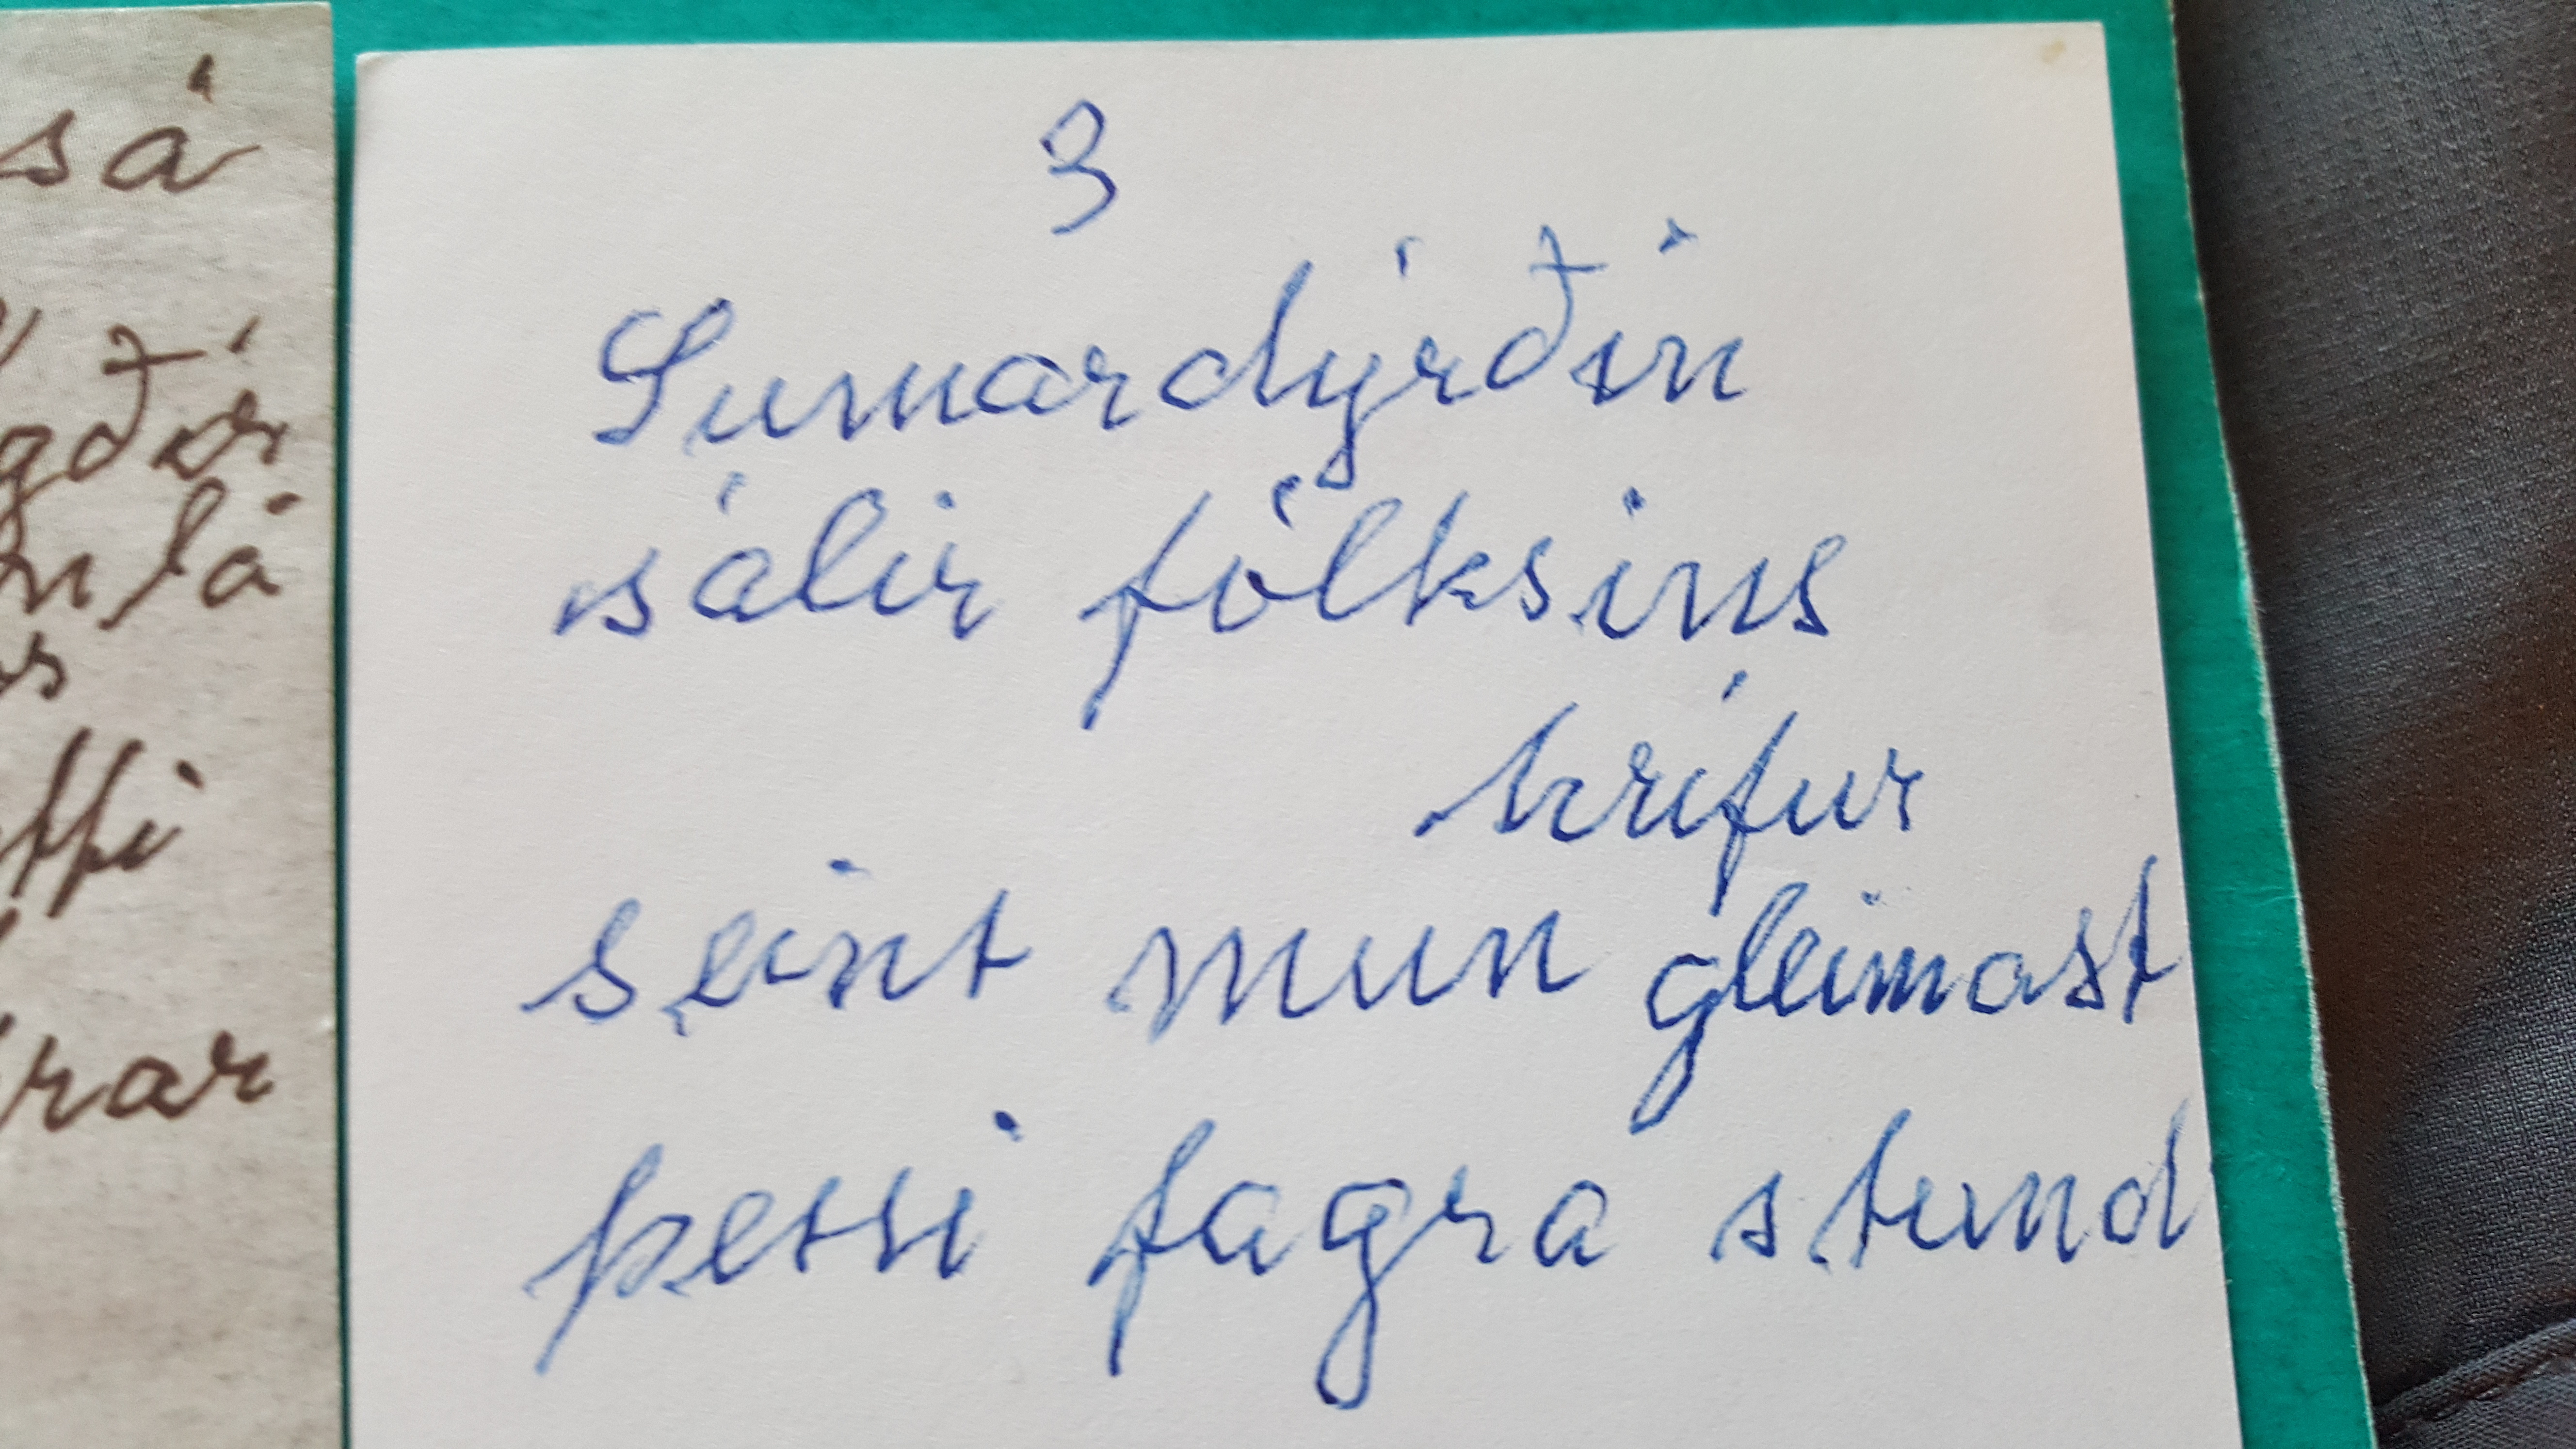 sá
3
Sumardýrðin
sálir fólksins
hrífur
seint mun gleimast
þessi fagra stund